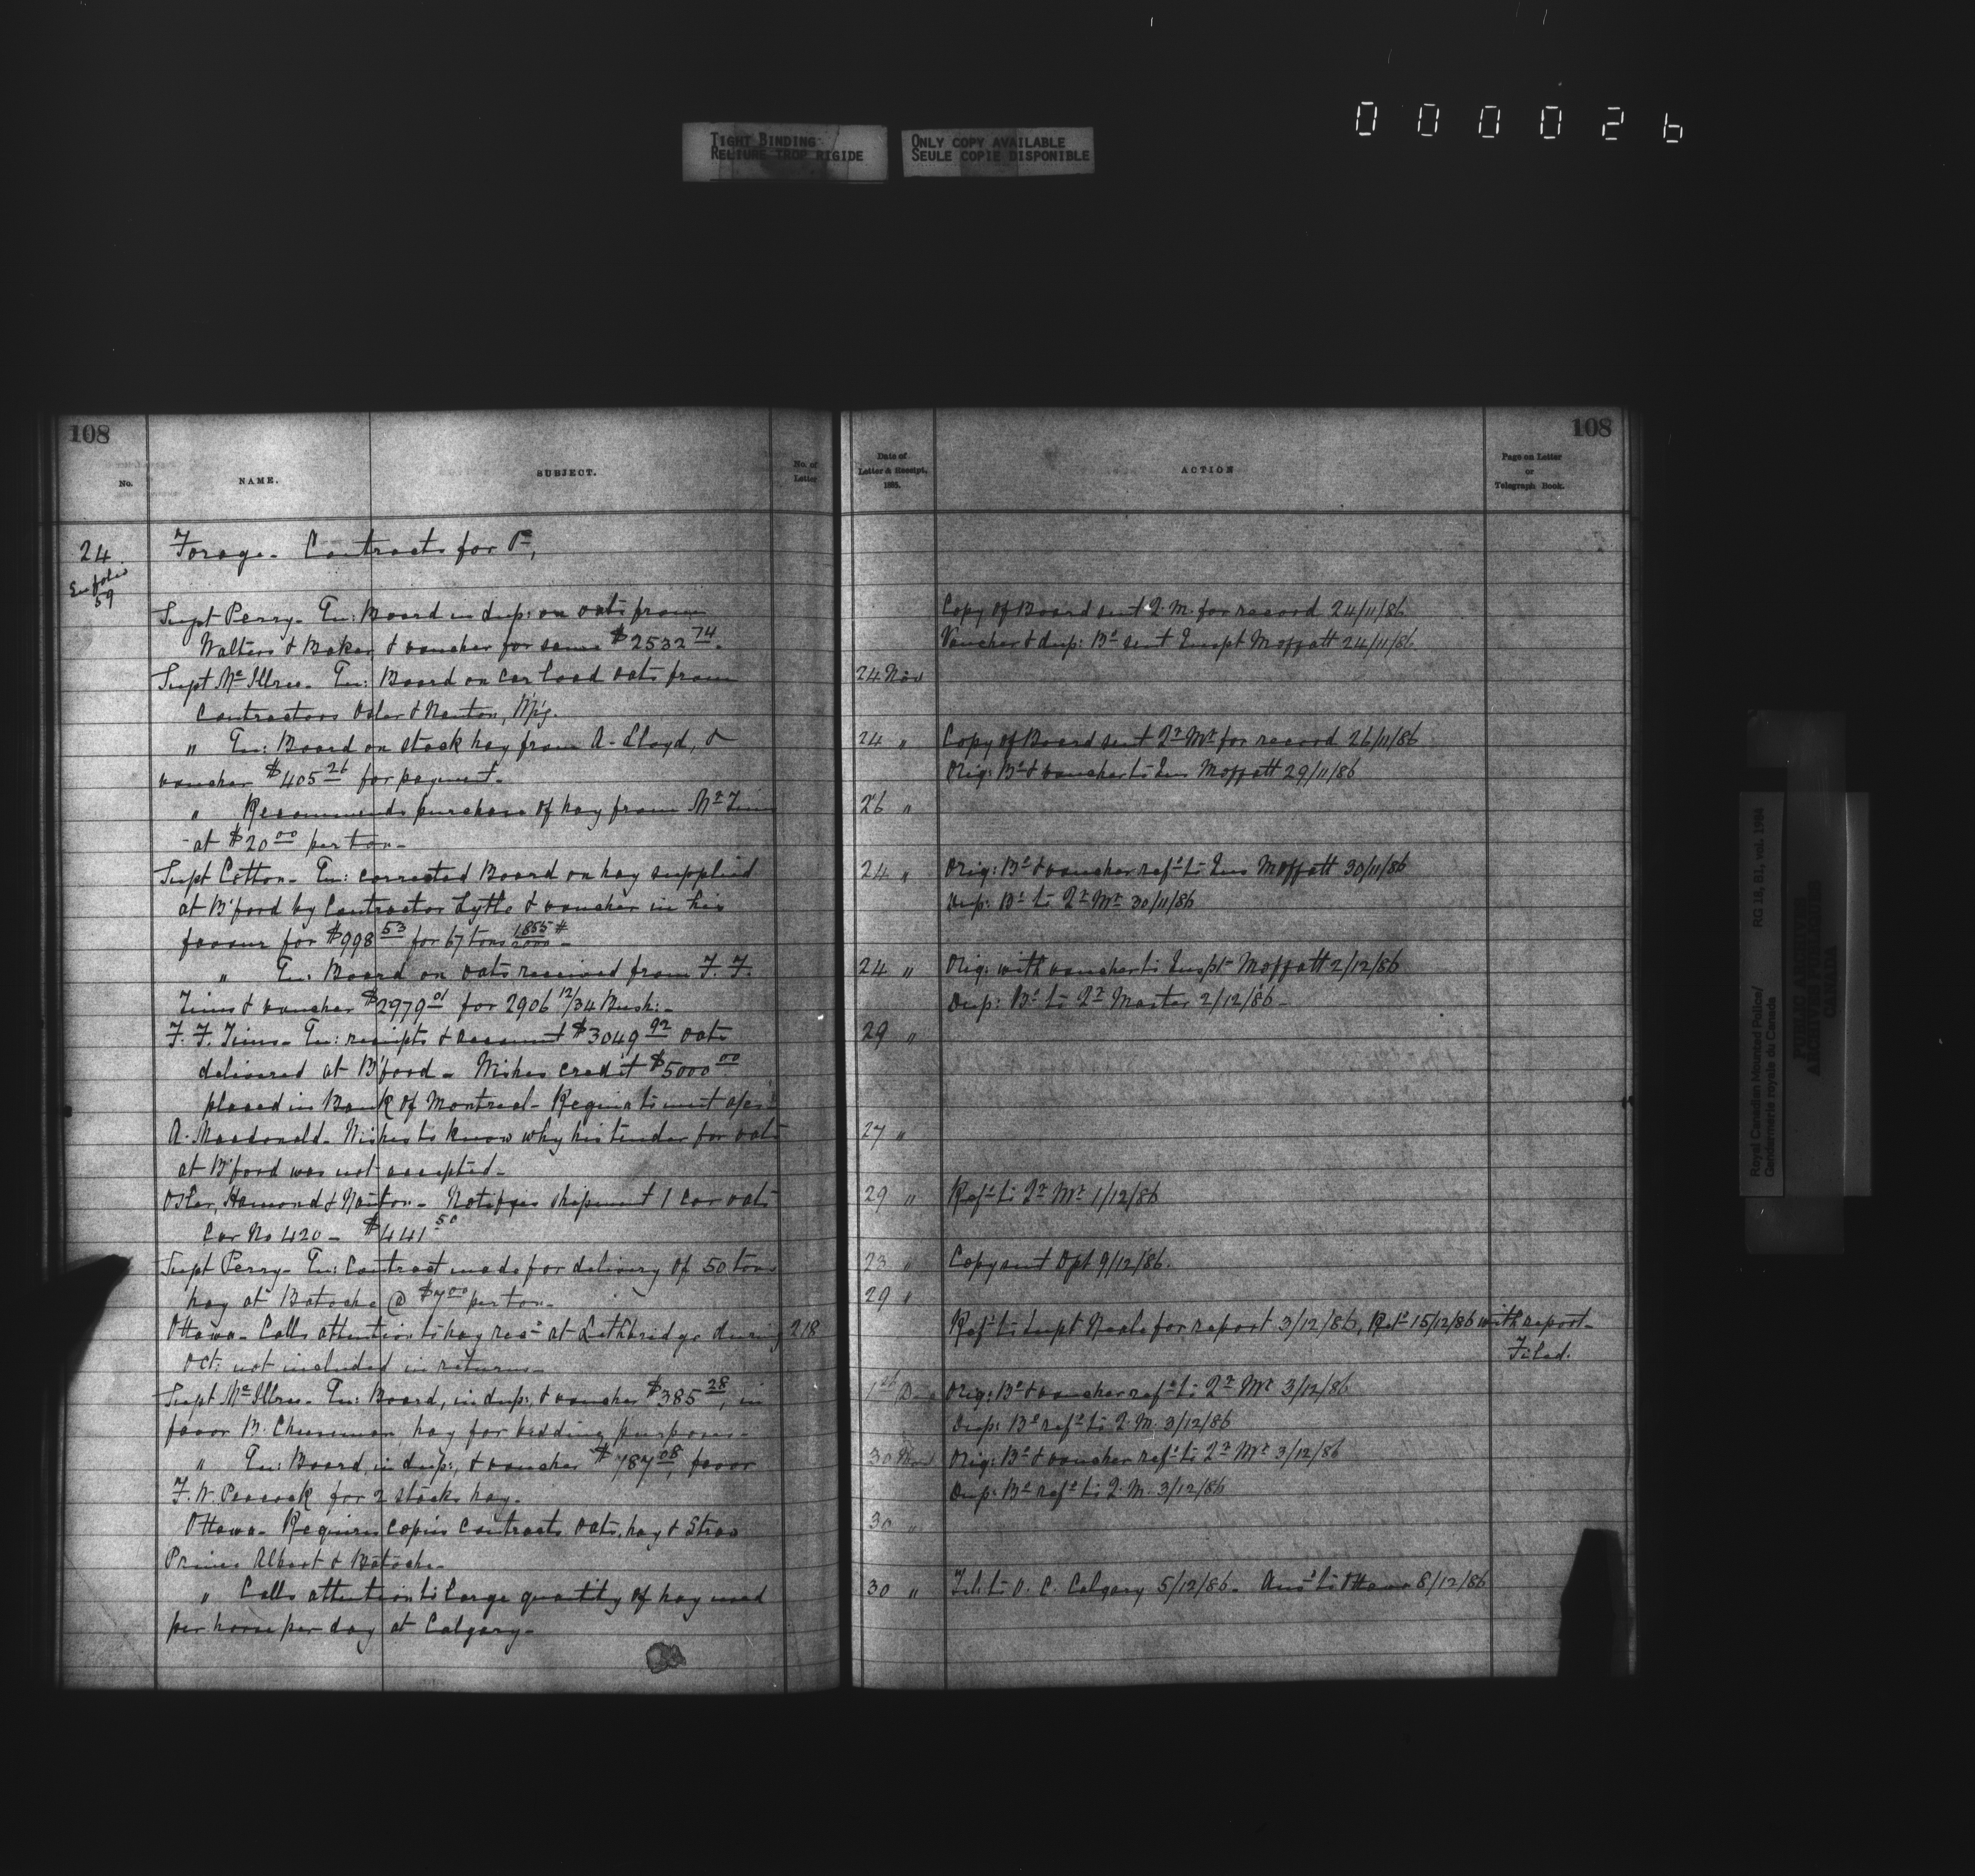 000026
TIGHT BINDING
RELIURE TROP RIGIDE
ONLY COPY AVAILABLE
SEULE COPIE DISPONIBLE
108
No.
NAME.
SUBJECT.
No. of
Letter
24
59
Forage - Contracts for
Supt Perry - En: Board in dup: on oats from
Walters & Baker & voucher for same $2532 74.
Supt Mc Illree - En: Board on car load oats from
Contractors Osler & Nanton, Wpg.
" En: Board on stack hay from A. Lloyd, &
voucher $405 26 for payment -
" Recommends purchase of hay from Mr Tims
at $20 00 per ton -
Supt Cotton - En: corrected Board on hay supplied
at B'ford by Contractor Lytle & voucher in his
favour for $998 53 for 67 tons 1855/2000 # -
" En: Board on oats received from F. F.
Tims & voucher $2979 01 for 2906 12/34 Bush: -
F. F. Tims - En: receipts & account $3049 92 oats
delivered at B'ford - Wishes credit $5000 00
placed in Bank of Montreal - Regina to meet
A. Macdonald - Wishes to know why his tender for oats
at B'ford was not accepted -
Osler, Hamond & Nanton - Notifies shipment 1 car oats
Car No 420 - $441 50
Supt Perry - En: Contract made for delivery of 50 tons
hay at Batoche @ $7 00 per ton -
Ottawa - Calls attention to hay recd at Lethbridge during 218
Oct: not included in returns -
Supt Mc Illree - En: Board, in dup: & voucher $385 28, in
favor B. Cheeseman, hay for bedding purposes -
" En: Board, in dup:, & voucher $787 08, favor
F. W. Peacock for 2 stacks hay -
Ottawa - Requires copies Contracts oats, hay & Straw
Prince Albert & Batoche -
" Calls attention to large quantity of hay used
per horse per day at Calgary -
108
Date of
Letter & Receipt,
1885.
ACTION
Page on Letter
or
Telegraph Book.
Copy of Board sent Q. M. for record 24/11/86
Voucher & dup: Bd sent Inspt Moffatt 24/11/86
24 Nov
24 " Copy of Board sent Qr Mr for record 26/11/86
Orig: Bd & voucher to Ins Moffatt 29/11/86
26 "
24 " Orig: Bd & voucher refd to Ins Moffatt 30/11/86
Dup: Bd to Qr Mr 30/11/86
24 " Orig: with voucher to Inspt Moffatt 2/12/86
Dup: Bd to Qr Master 2/12/86 -
29 "
27 "
29 " Refd to Qr Mr 1/12/86
23 " Copy sent Dpt 9/12/86.
29 "
Refd to Supt Neale for report 3/12/86, Retd 15/12/86 with report -
Filed.
1st Dec Orig: Bd & voucher refd to Qr Mr 3/12/86
Dup: Bd refd to Q. M. 3/12/86
30 Nov Orig: Bd & voucher refd to Qr Mr 3/12/86
Dup: Bd refd to Q. M. 3/12/86
30 "
30 " Tel: to O. C. Calgary 5/12/86 - Ansd to Ottawa 8/12/86
Royal Canadian Mounted Police/
Gendarmerie royale du Canada
RG 18, B1, vol. 1984
PUBLIC ARCHIVES
ARCHIVES PUBLIQUES
CANADA